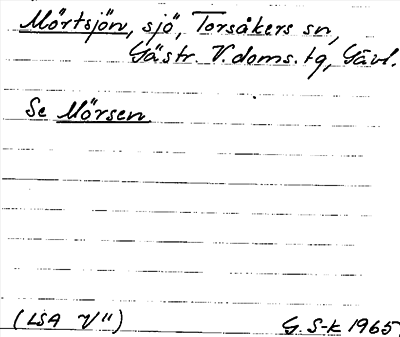 Mörtsjön, sjö, Torsåkers sn,
Gästr. V. doms. tg, Gävl.
Se Mörsen
(LSA V")
G. S-k 1965